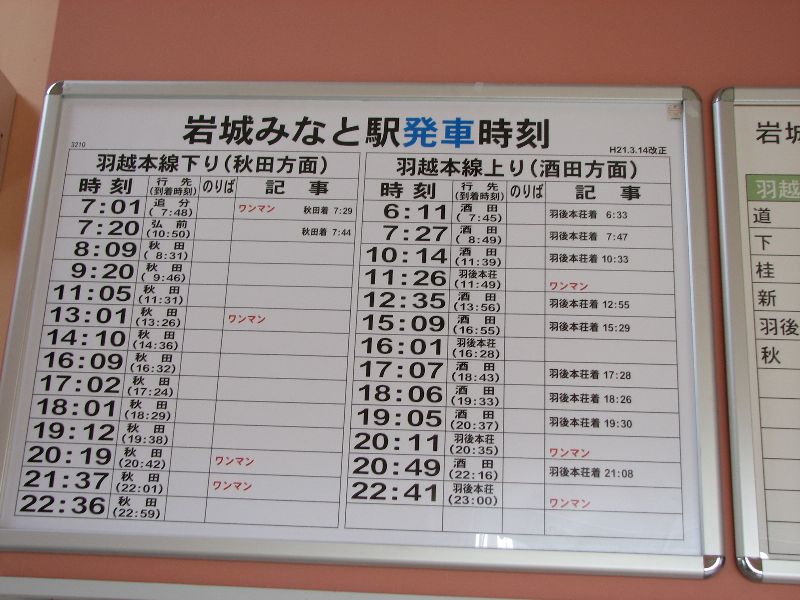 岩城みなと駅発車時刻
3210
H21.3.14改正
羽越本線下り(秋田方面)
時刻 行先(到着時刻) のりば 記事
7:01 追分(7:48) ワンマン 秋田着 7:29
7:20 弘前(10:50) 秋田着 7:44
8:09 秋田(8:31)
9:20 秋田(9:46)
11:05 秋田(11:31)
13:01 秋田(13:26) ワンマン
14:10 秋田(14:36)
16:09 秋田(16:32)
17:02 秋田(17:24)
18:01 秋田(18:29)
19:12 秋田(19:38)
20:19 秋田(20:42) ワンマン
21:37 秋田(22:01) ワンマン
22:36 秋田(22:59)
羽越本線上り(酒田方面)
時刻 行先(到着時刻) のりば 記事
6:11 酒田(7:45) 羽後本荘着 6:33
7:27 酒田(8:49) 羽後本荘着 7:47
10:14 酒田(11:39) 羽後本荘着 10:33
11:26 羽後本荘(11:49) ワンマン
12:35 酒田(13:56) 羽後本荘着 12:55
15:09 酒田(16:55) 羽後本荘着 15:29
16:01 羽後本荘(16:28)
17:07 酒田(18:43) 羽後本荘着 17:28
18:06 酒田(19:33) 羽後本荘着 18:26
19:05 酒田(20:37) 羽後本荘着 19:30
20:11 羽後本荘(20:35) ワンマン
20:49 酒田(22:16) 羽後本荘着 21:08
22:41 羽後本荘(23:00) ワンマン
岩城
羽越
道
下
桂
新
羽後
秋